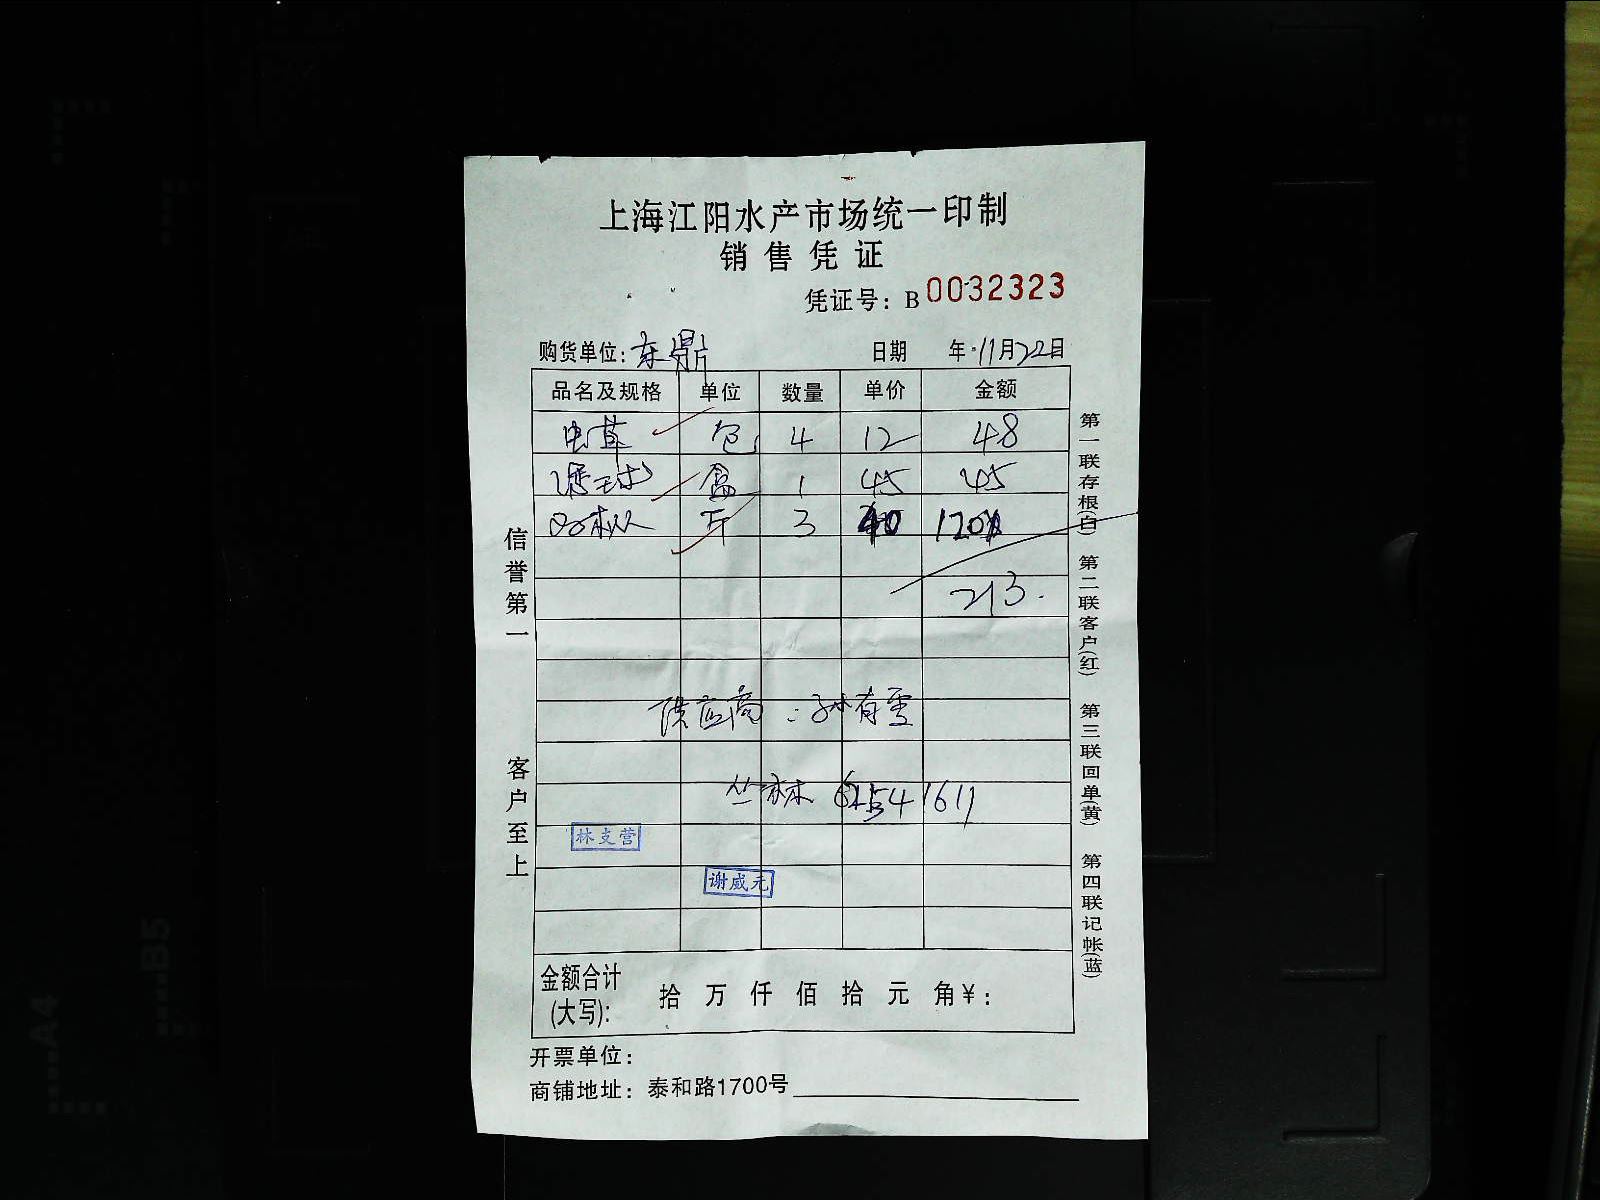 上海江阳水产市场统一印制
销售凭证
凭证号：B 0032323
购货单位：东鼎 日期 年 11月22日
品名及规格 单位 数量 单价 金额
虫草 包 4 12 48
盒 1 45 45
斤 3 40 120
213.
供应商：孙有雪
丛林 61541611
林支营
谢威元
金额合计(大写)： 拾 万 仟 佰 拾 元 角 ¥：
开票单位：
商铺地址：泰和路1700号
信誉第一 客户至上
第一联存根(白) 第二联客户(红) 第三联回单(黄) 第四联记帐(蓝)
B5
A4